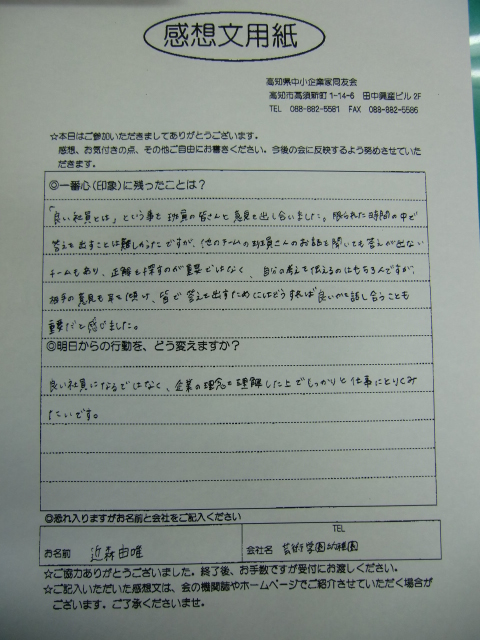 感想文用紙
高知県中小企業家同友会
高知市高須新町1-14-6 田中興産ビル2F
TEL 088-882-5581 FAX 088-882-5586
☆本日はご参加いただきましてありがとうございます。
感想、お気付きの点、その他ご自由にお書きください。今後の会に反映するよう努めさせていた
だきます。
◎一番心(印象)に残ったことは?
「良い社員とは」という事を 班員の皆さんと意見を出し合いました。限られた時間の中で
答えを出すことは難しかったですが、他のチームの班員さんのお話を聞いても答えが出ない
チームもあり、正解を探すのが重要ではなく、自分の考えを伝えるのはもちろんですが、
相手の意見も耳を傾け、皆で答えを出すためにはどうすれば良いかを話し合うことも
重要だと感じました。
◎明日からの行動を、どう変えますか?
良い社員になるではなく、企業の理念を理解した上でしっかりと仕事にとりくみ
たいです。
◎恐れ入りますがお名前と会社をご記入ください
TEL
お名前 近森由唯 会社名 芸術学園幼稚園
☆ご協力ありがとうございました。終了後、お手数ですが受付にお渡しください。
☆ご記入いただいた感想文は、会の機関誌やホームページでご紹介させていただく場合が
ございます。ご了承くださいませ。